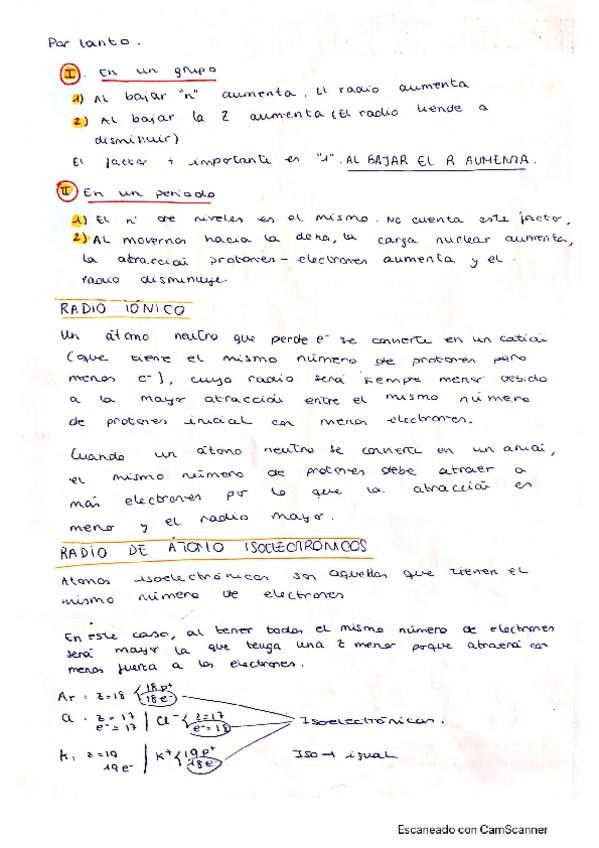 Por tanto.
I. En un grupo
1) Al bajar "n" aumenta. El radio aumenta
2) Al bajar la Z aumenta (El radio tiende a
disminuir)
El factor + importante es "1". AL BAJAR EL R AUMENTA.
II En un periodo
1) El nº de niveles es el mismo. No cuenta este factor,
2) Al movernos hacia la dcha, la carga nuclear aumenta,
la atracción protones - electrones aumenta y el
radio disminuye.
RADIO IÓNICO
Un átomo neutro que perde e- se convierte en un catión
(que tiene el mismo número de protones pero
menos e-), cuyo radio será siempre menor debido
a la mayor atracción entre el mismo número
de protones inicial con menos electrones.
Cuando un átomo neutro se convierte en un anión,
el mismo número de protones debe atraer a
más electrones por lo que la atracción es
menor y el radio mayor.
RADIO DE ÁTOMO ISOELECTRÓNICOS
Atomos isoelectrónicos son aquellos que tienen el
mismo número de electrones
En este caso, al tener todos el mismo número de electrones
será mayor la que tenga una Z menor porque atraerá con
menos fuerza a los electrones.
Ar: Z=18 18p+ 18e-
Cl. Z=17 e-=17 | Cl- Z=17 e-=18 Isoelectrónicas.
K: Z=19 19e- | K+ 19e+ 18e- Iso→igual
Escaneado con CamScanner